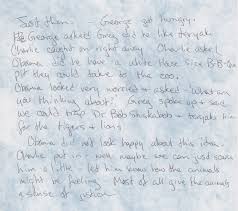 Just then. - George got hungry.
George asked Greg did he like teryaki
Charlie caught on right away. Charlie asked
Obama did he have a white House size B-B-Que
pit they could take to the zoo.
Obama looked very worried & asked - What are
you thinking about? Greg spoke up & said
we could trap Dr. Bob & teryaki him
for the tigers & lions
Obama did not look happy about this idea.
Charlie put in - well maybe we can just saw
him a little. let him know how the animals
might be feeling. Most of all give the animals
a sense of